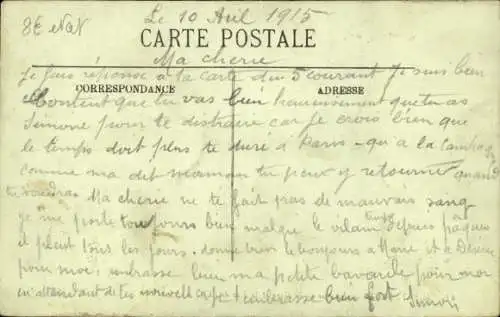 Le 10 Avil 1915
CARTE POSTALE
Ma cherie
Je fais réponse a la carte du 5 courant Je suis bien
CORRESPONDANCE ADRESSE
Content que tu vas bien heureusement que tu as
Simone pour te distraire car je crois bien que
le temps doit plus te duré a Paris qu a la
comme ma dit maman tu peux y retourné quand
tu voudras Ma cherie ne te fait pas de mauvais sang
je me porte toujours bien malgre le vilain temps depuis pâques
il pleut tous les jours. donne bien le bonjours a et a Désiré
pour moi, embrasse bien ma petite bavarde pour moi
en attendant de tes nouvelle bien fort